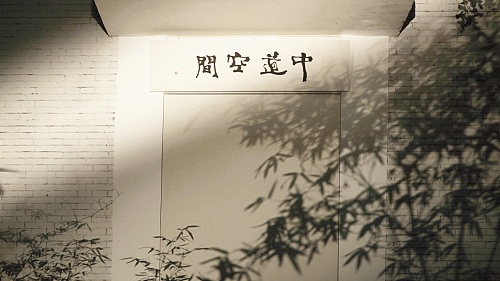 中道空間